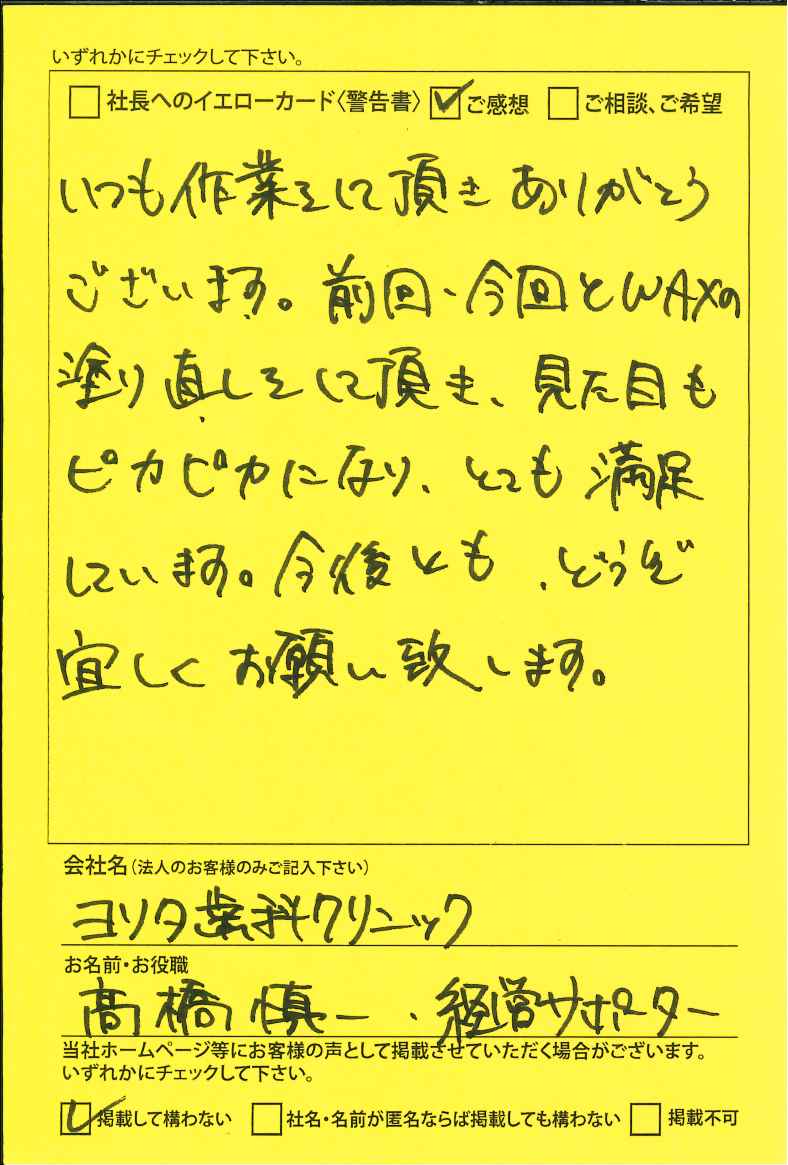 いずれかにチェックして下さい。
社長へのイエローカード〈警告書〉 ご感想 ご相談、ご希望
いつも作業をして頂き ありがとう
ございます。前回・今回とWAXの
塗り直しをして頂き、見た目も
ピカピカになり、とても満足
しています。今後とも、どうぞ
宜しくお願い致します。
会社名(法人のお客様のみご記入下さい)
ヨリタ歯科クリニック
お名前・お役職
高橋慎一・経営サポーター
当社ホームページ等にお客様の声として掲載させていただく場合がございます。
いずれかにチェックして下さい。
掲載して構わない 社名・名前が匿名ならば掲載しても構わない 掲載不可